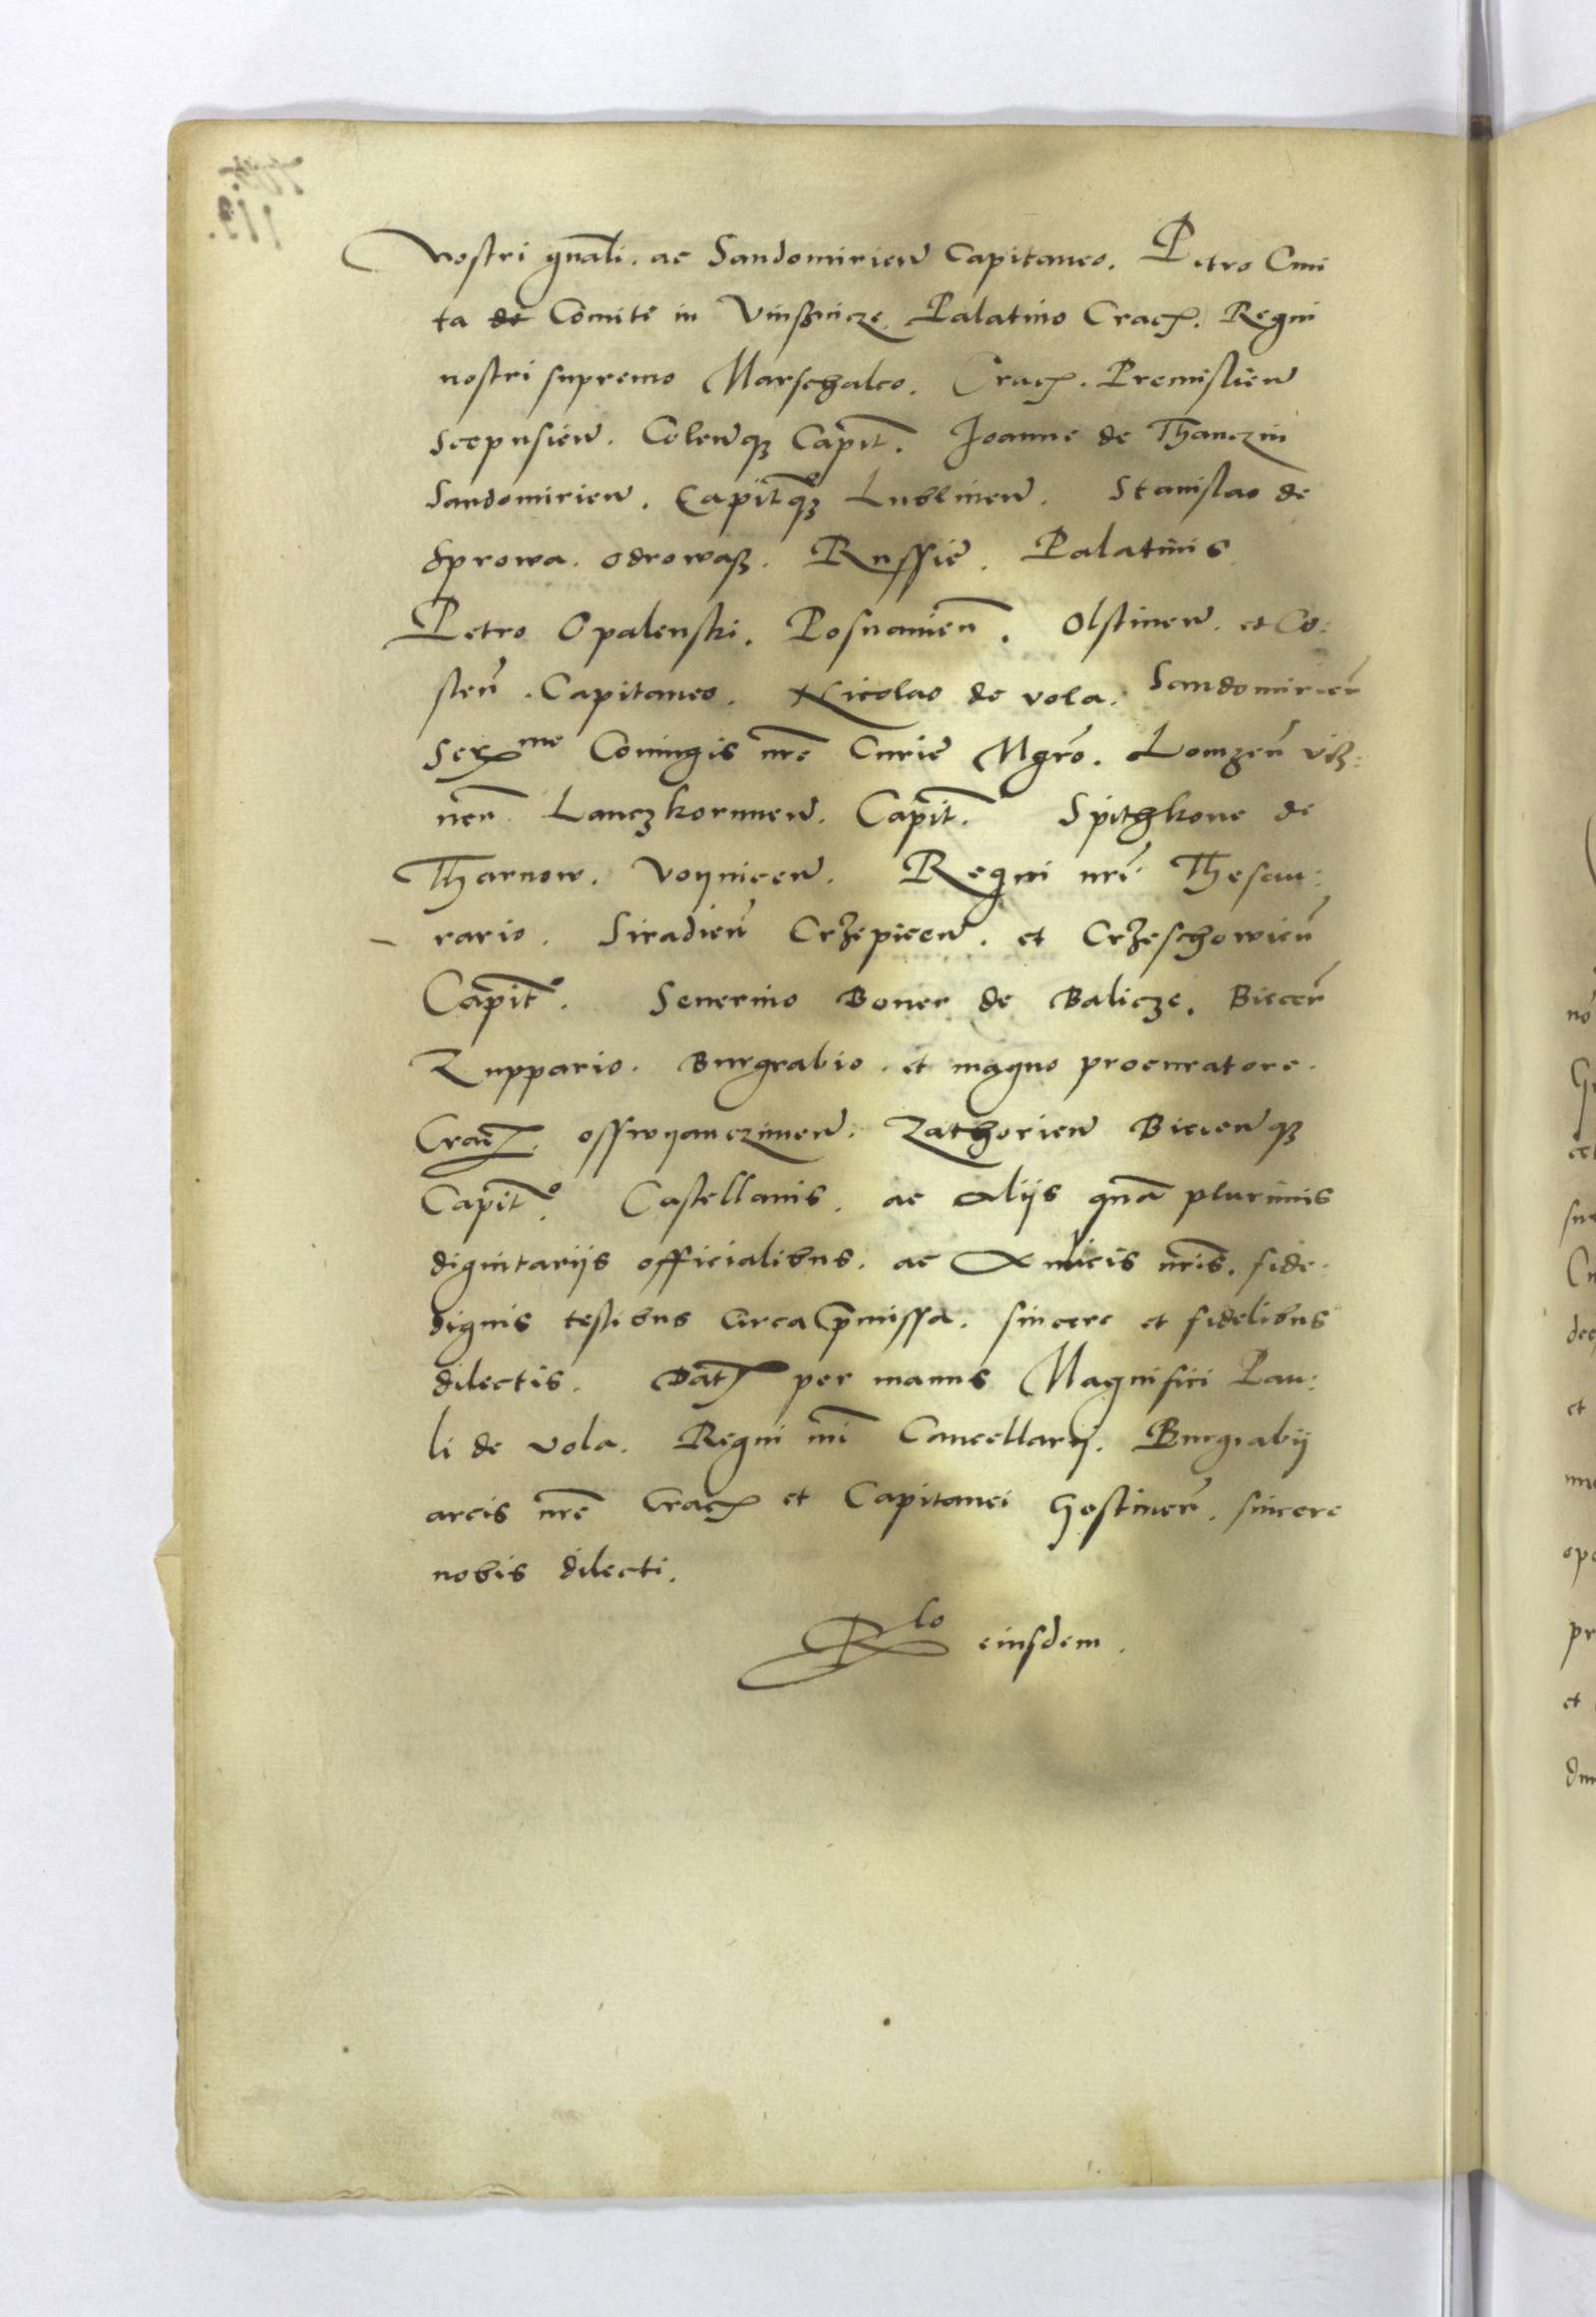 nostri gnali. ac Sandomirien Capitaneo. Petro Cmi
ta de Comite in Vinßnicze Palatino Crac. Regni
nostri supremo Marschalco. Crac. Premislien
Scepusien. Colenqz Capit. Joanne de Thanczin
Sandomirien. Capitqz Lublinen. Stanislao de
Sprowa. odrowaß. Russie. Palatinis
Petro Opalenski. Posnanien. Olstinen. et Co:
sten. Capitaneo. Nicolao de vola. Sandomirien
Ser me Coniugis nre Curie Mgro. Lomzen viß:
nen Lanczkorunen. Capit. Spithkone de
Tharnow. Voynicen. Regni nri Thesau:
rario. Siradien Crzepicen. et Crzeschowien
Capito. Seuerino Boner de Balicze. Biecen
Zuppario. Burgrabio. et magno procuratore.
Crac. osswyanczimen. Zathorien Biecenqz
Capito. Castellanis. ac alijs qua plurimis
dignitarijs officialibus. ac Aulicis nris. fide
dignis testibus circa pmissa. sincere et fidelibus
dilectis. Dat per manus Magnifici Pau:
li de vola. Regni nri Cancellarij. Burgrabij
arcis nre Crac et Capitanei Gostinen. sincere
nobis dilecti.
Rlo eiusdem.